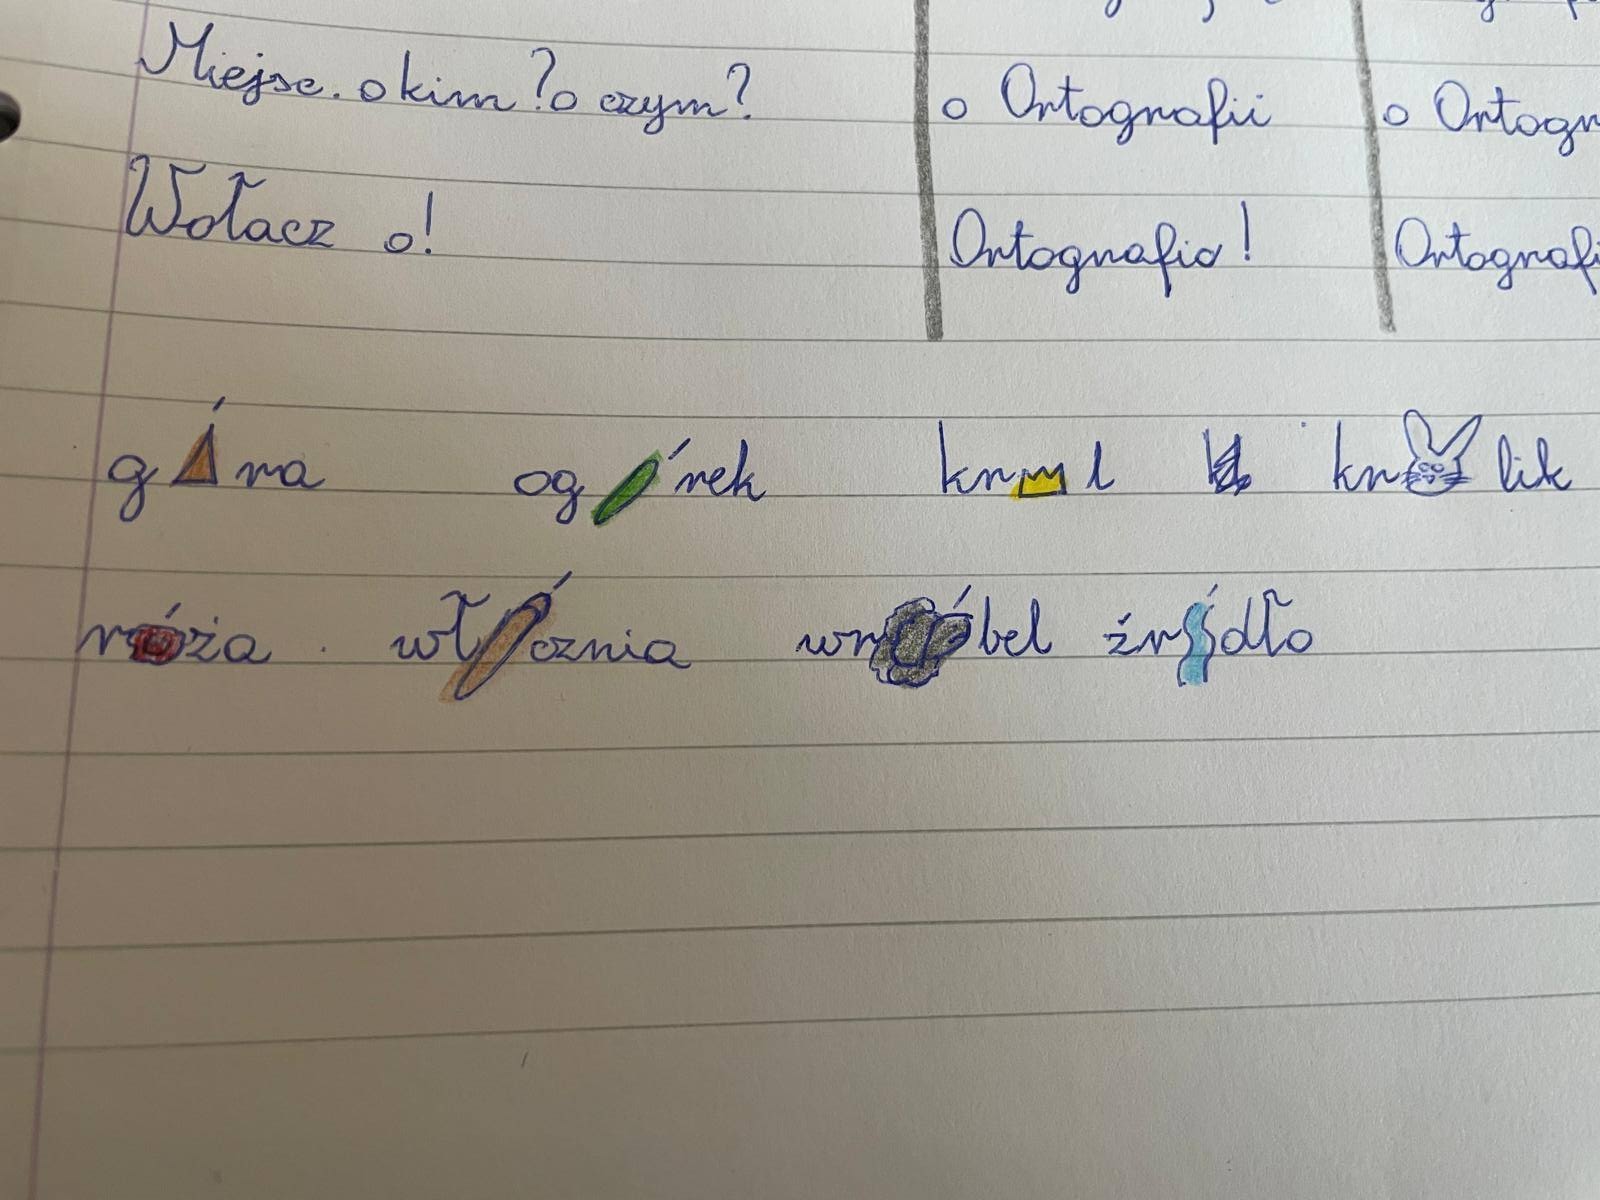 Miejsc. o kim? o czym? o Ortografii o Ortogr
Wołacz o! Ortografio! Ortografi
góra ogórek król królik
róża włócznia wróbel źródło